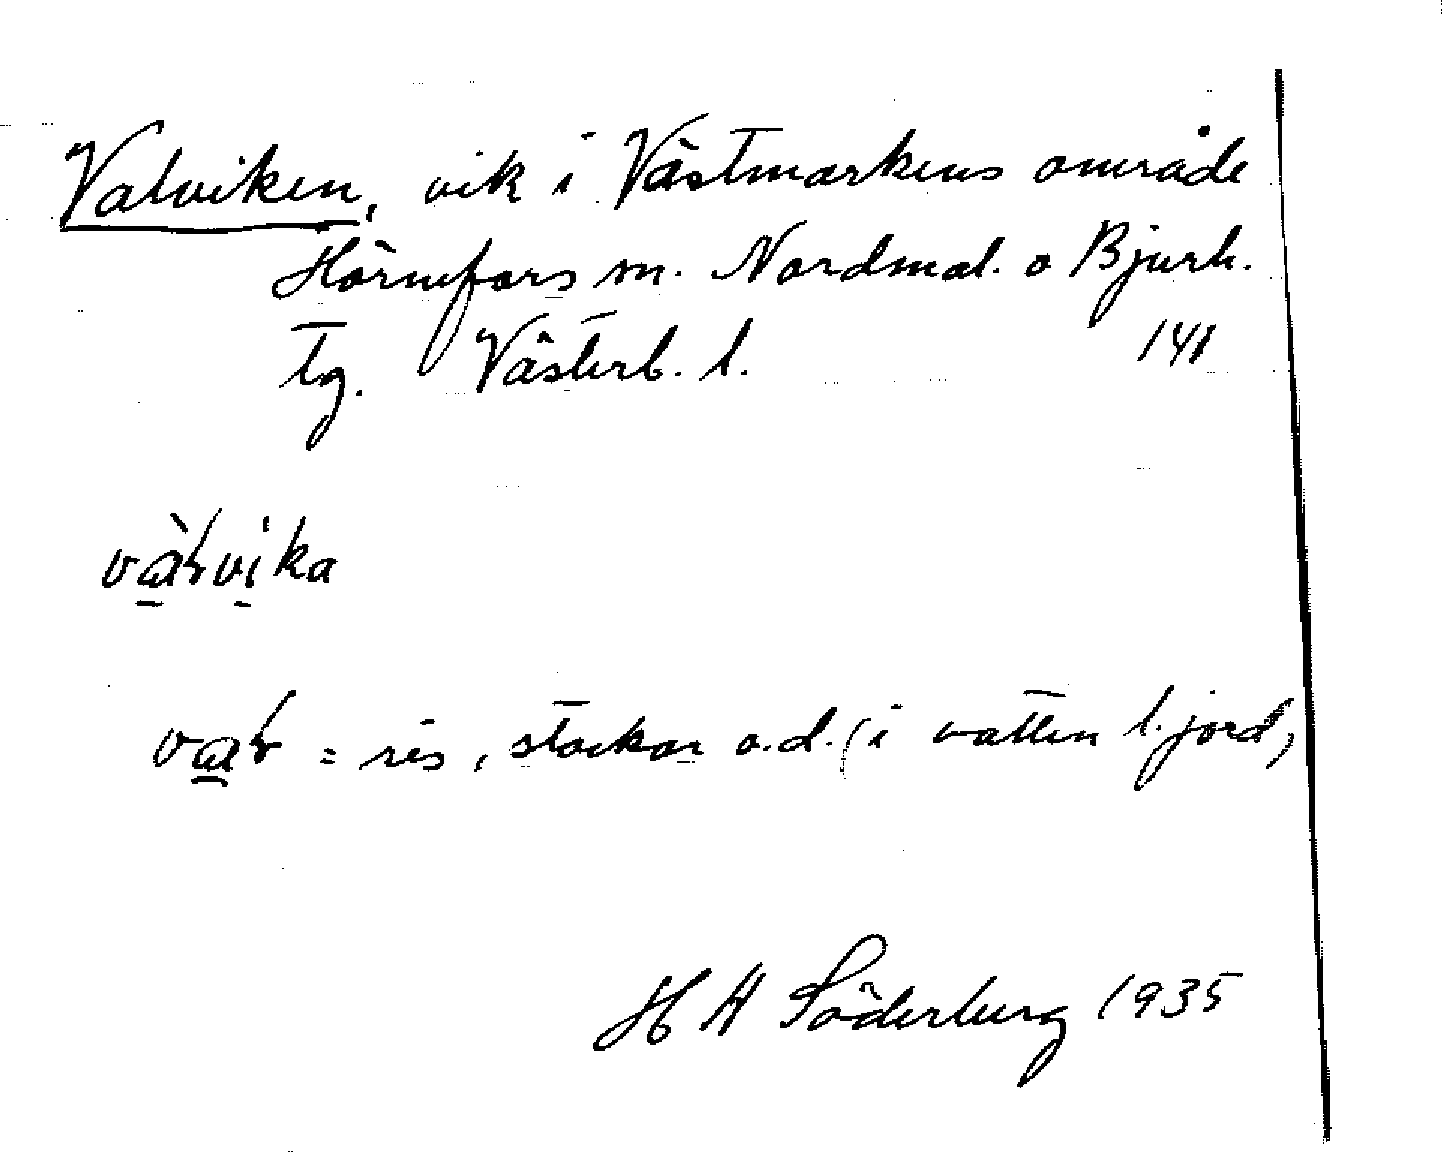 Valviken, vik i Västmarkens område
Hörnefors sn. Nordmal. o Bjurh.
tg. Västerb. l. 141
vàɽvika
vaɽ = ris, stockar o.d. (i vatten l. jord)
H A Söderberg 1935